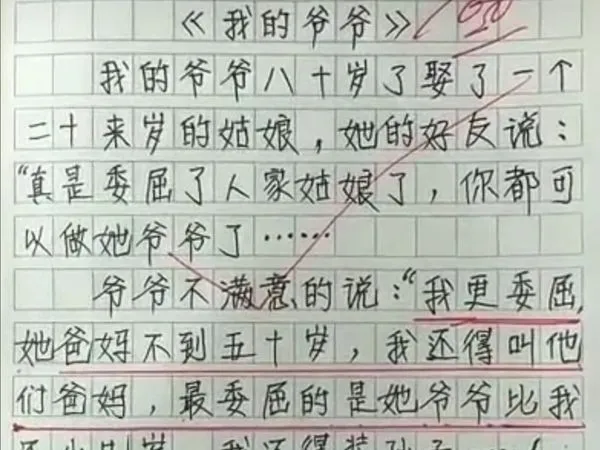 《我的爷爷》
我的爷爷八十岁了娶了一个
二十来岁的姑娘，她的好友说：
“真是委屈了人家姑娘了，你都可
以做她爷爷了……
爷爷不满意的说：“我更委屈,
她爸妈不到五十岁，我还得叫他
们爸妈，最委屈的是她爷爷比我